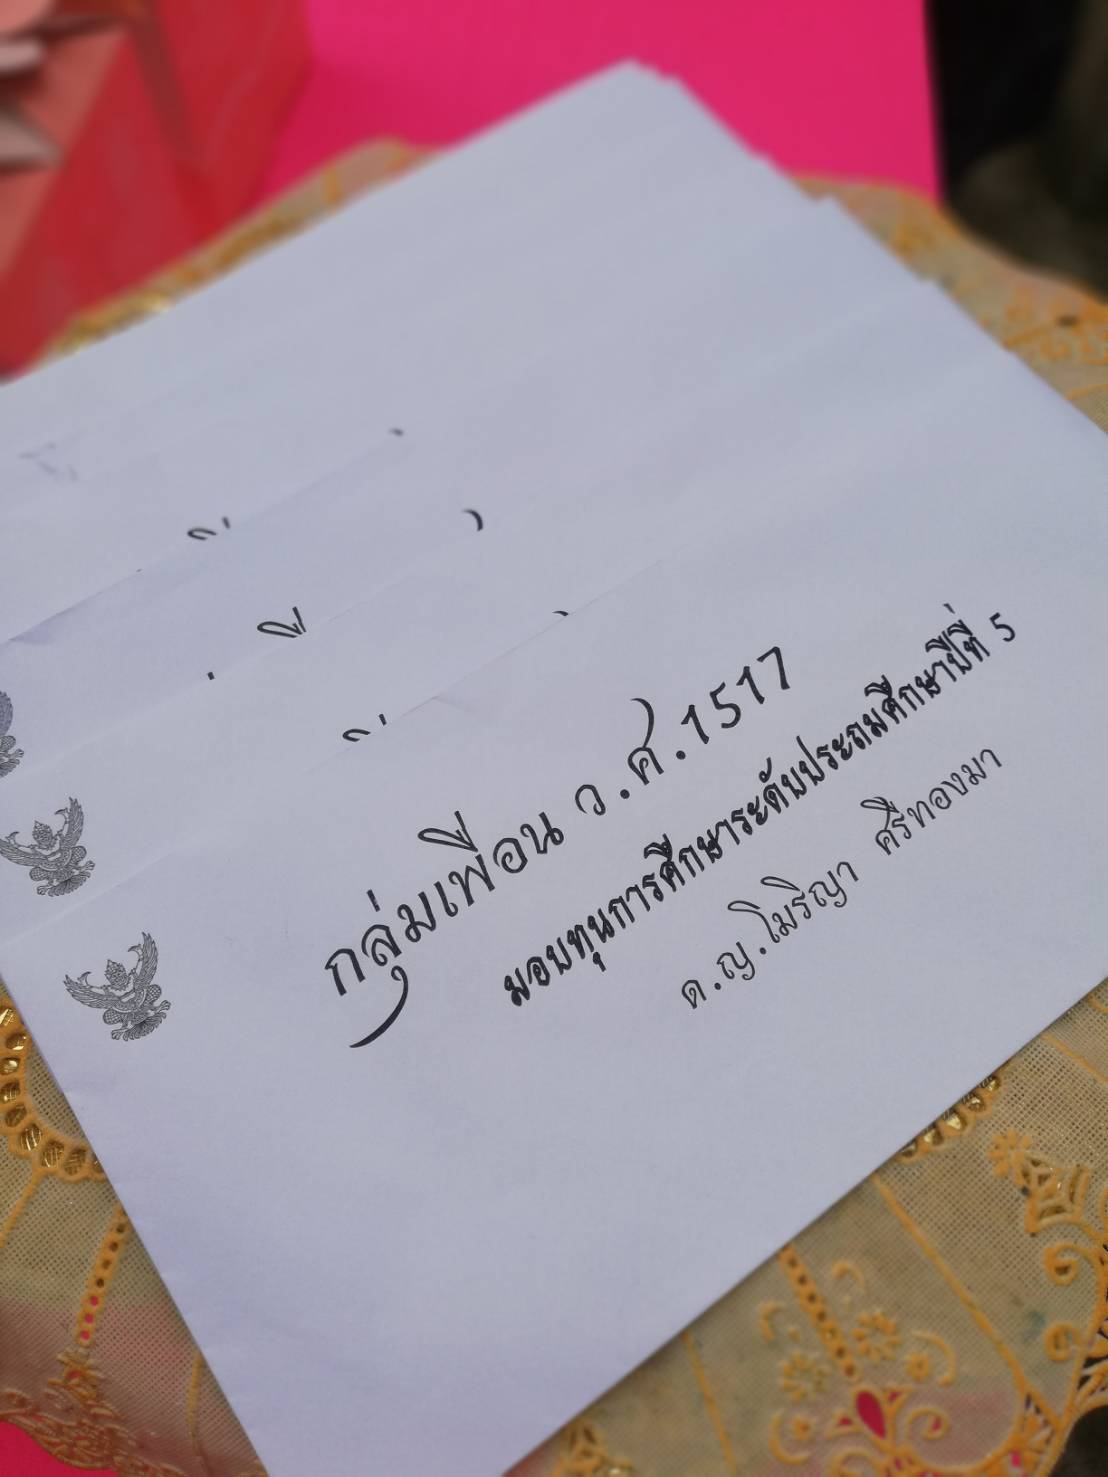 กลุ่มเพื่อน ว.ศ.1517
มอบทุนการศึกษาระดับประถมศึกษาปีที่ 5
ด.ญ.โมริญา ศรีทองมา